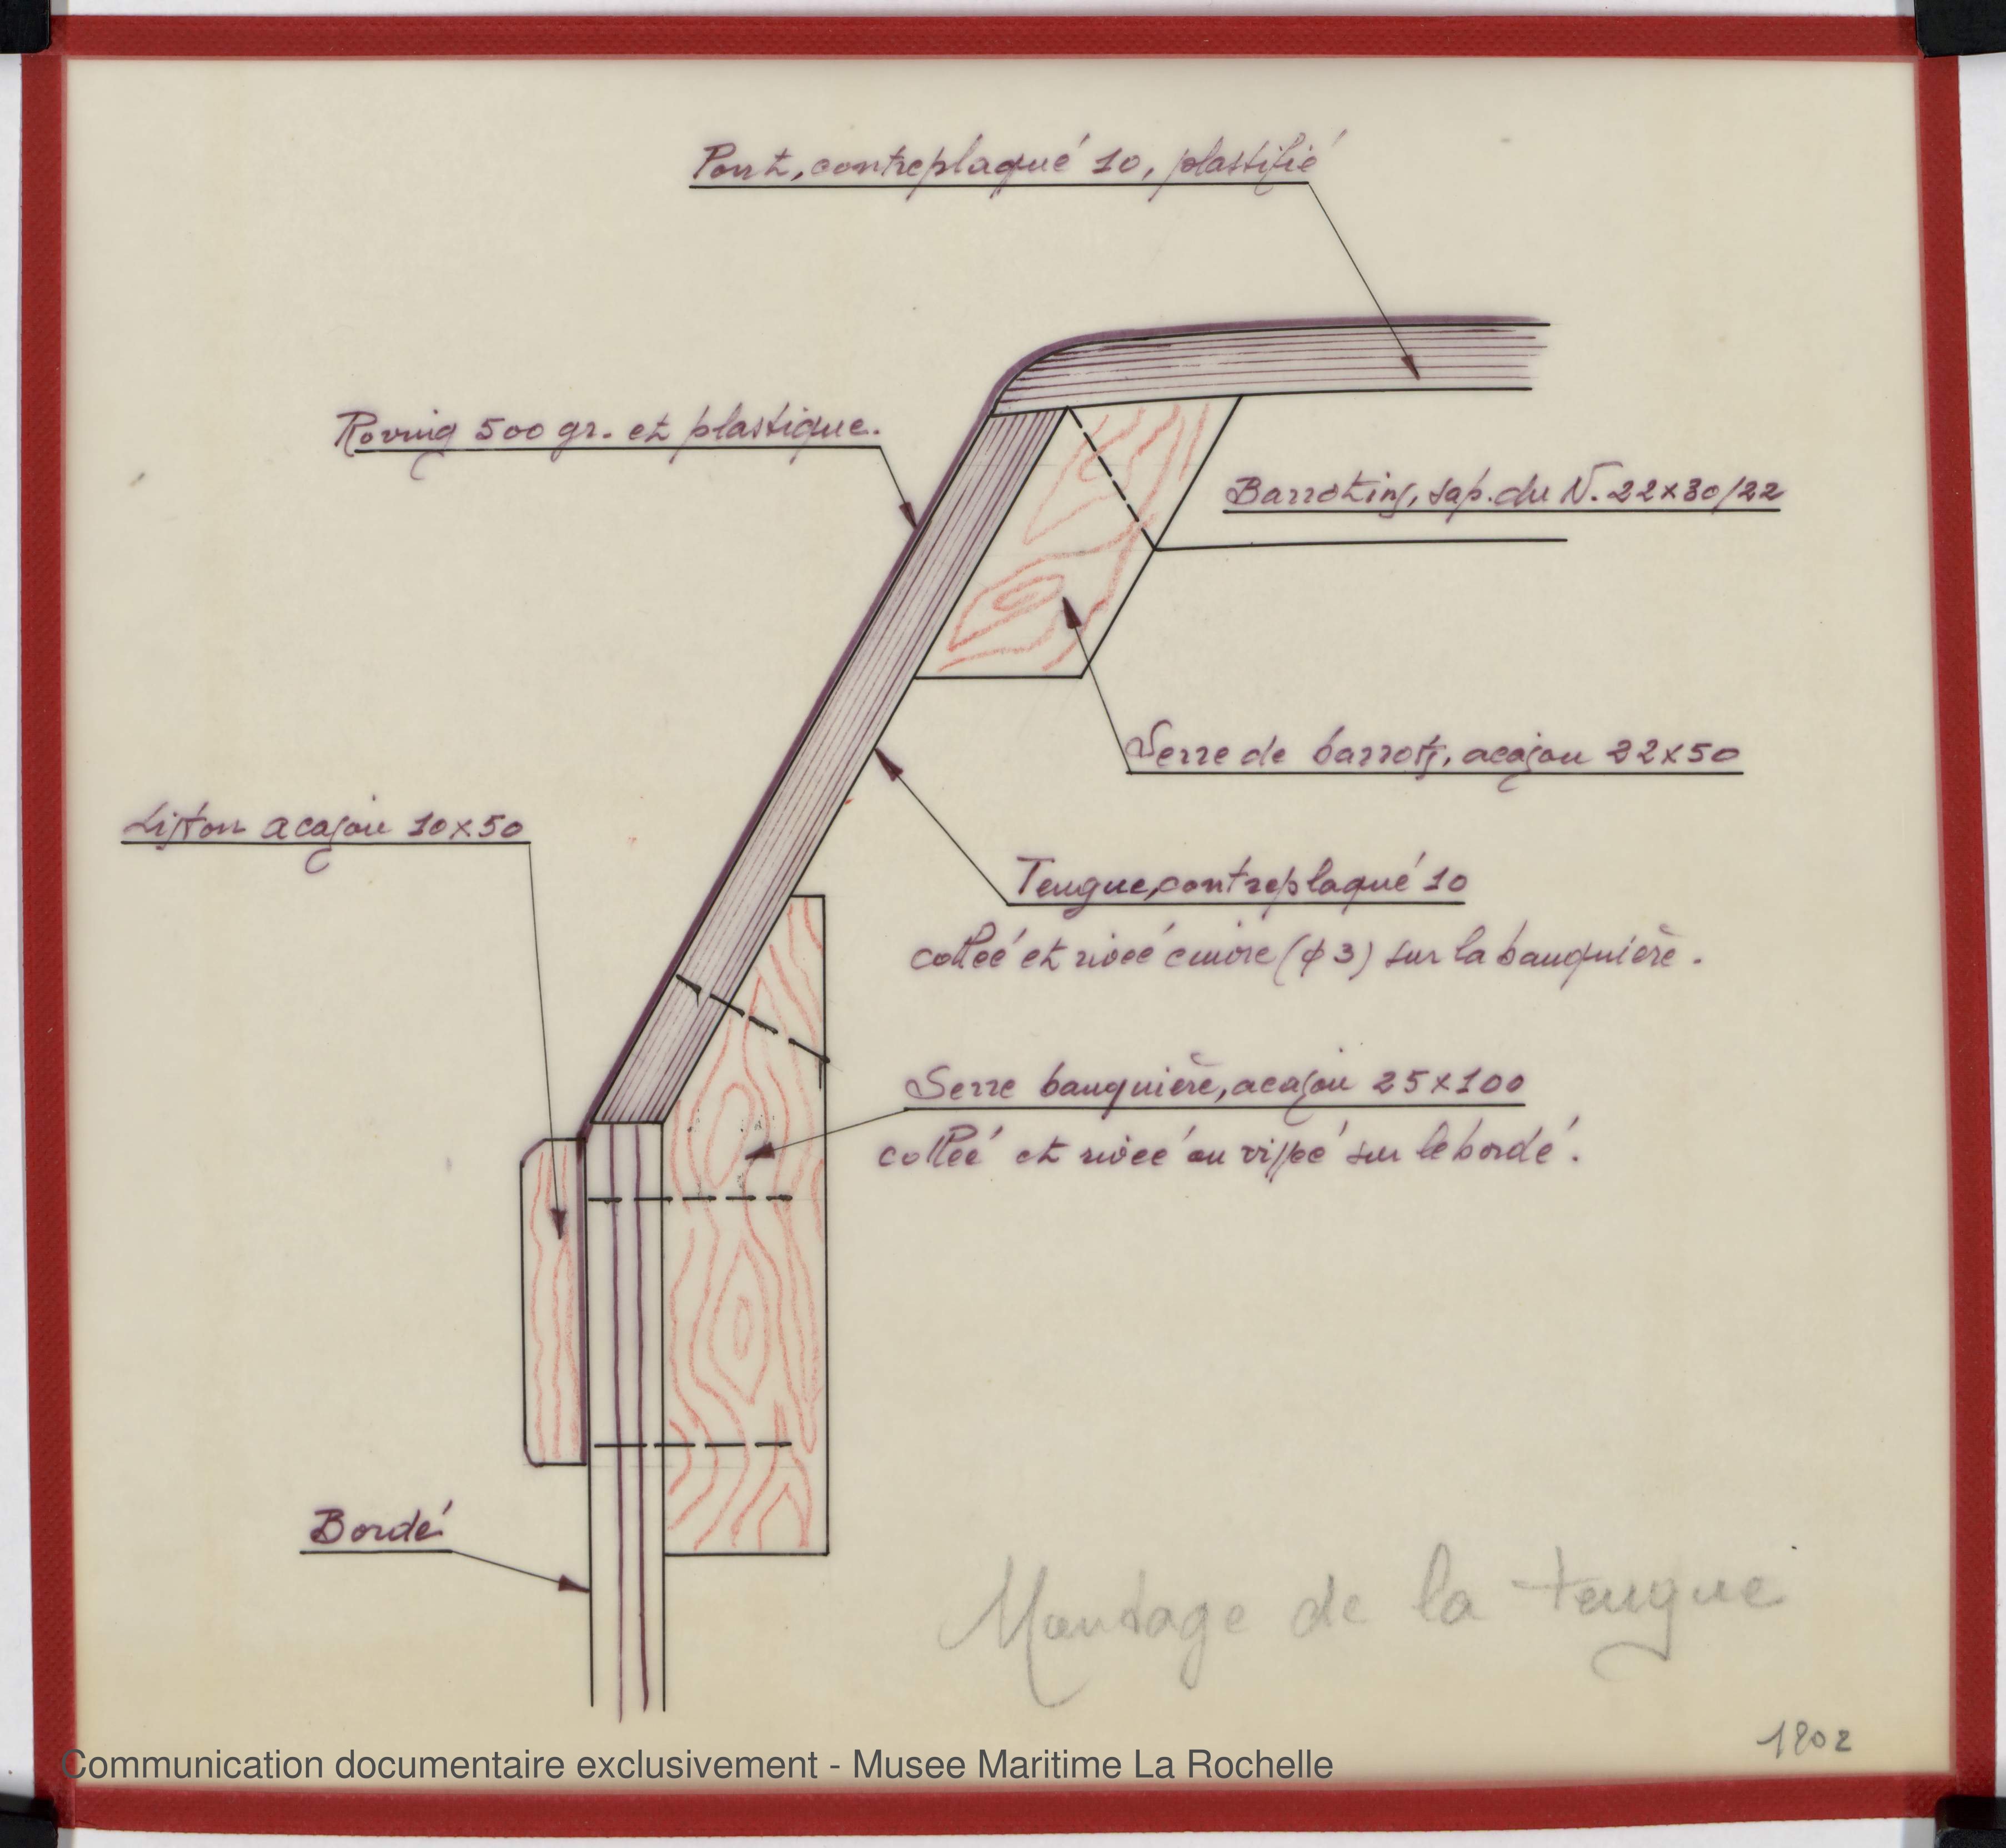 Pont, contreplaqué 10, plastifié
Rovuig 500 gr. et plastique.
Barrotins, sap. du N. 22x30/22
Serre de barrots, acajou 22x50
Liston acajou 10x50
Teugue, contreplaqué 10
collée et rivée cuivre (ϕ3) sur la bauquière.
Serre bauquière, acajou 25x100
collée et rivée ou vissée sur le bordé.
Bordé
Montage de la teugue
1802
Communication documentaire exclusivement - Musee Maritime La Rochelle